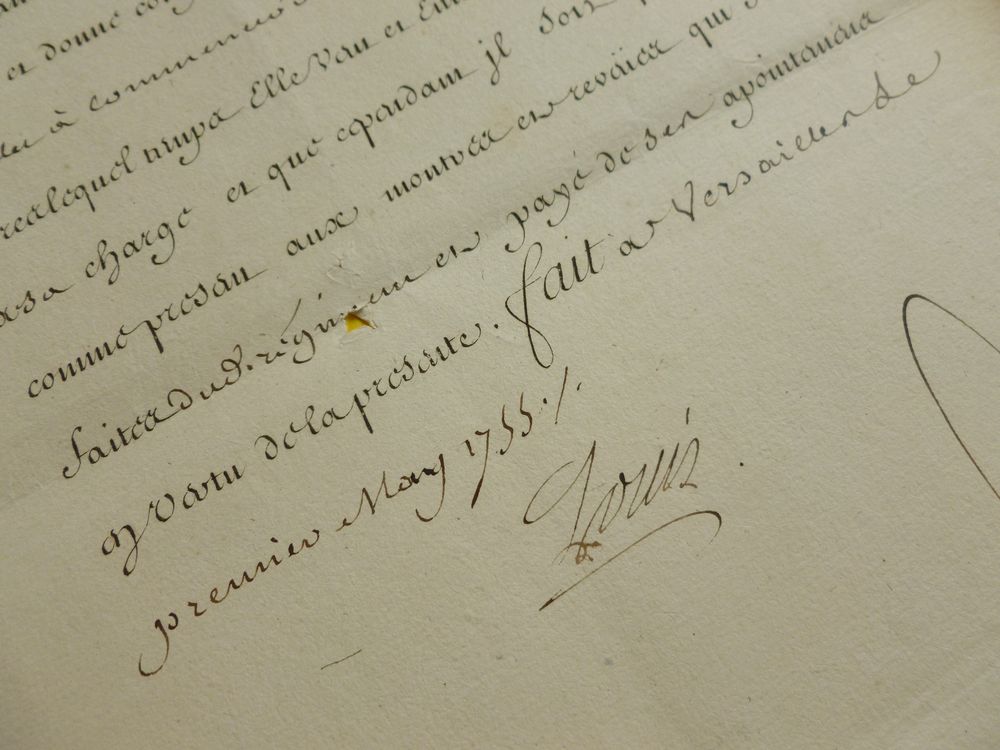 et donné
à commencer
Elle Van et
sa charge et que cependant jl soit
comme présent aux montres et reveües qui
faites dud. régiment et payé de ses apointemens
en vertu de la présente. fait à Versailles Le
premier May 1755 ./.
Louis .